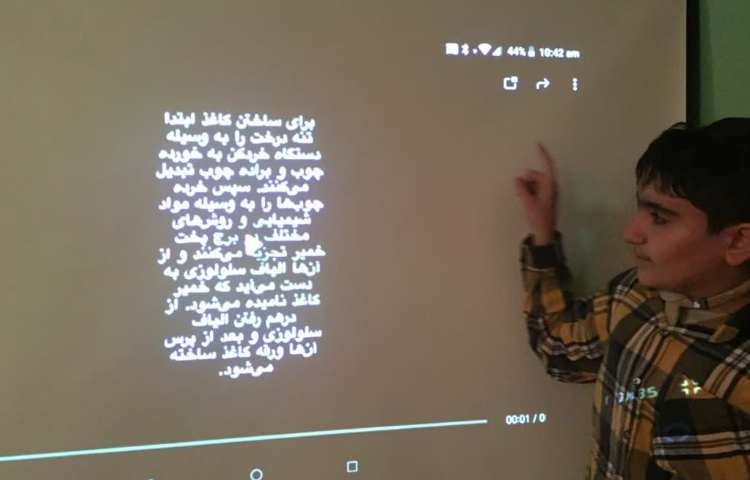 44% 10:42 am
برای ساختن کاغذ ابتدا
تنه درخت را به وسیله
دستگاه خردکن به خورده
چوب و براده چوب تبدیل
می‌کنند. سپس خرده
چوب‌ها را به وسیله مواد
شیمیایی و روش‌های
مختلف برج پخت
خمیر تجزیه می‌کنند و از
آنها الیاف سلولوزی به
دست می‌آید که خمیر
کاغذ نامیده می‌شود. از
درهم رفتن الیاف
سلولوزی و بعد از پرس
آنها ورقه کاغذ ساخته
می‌شود.
00:01 / 0